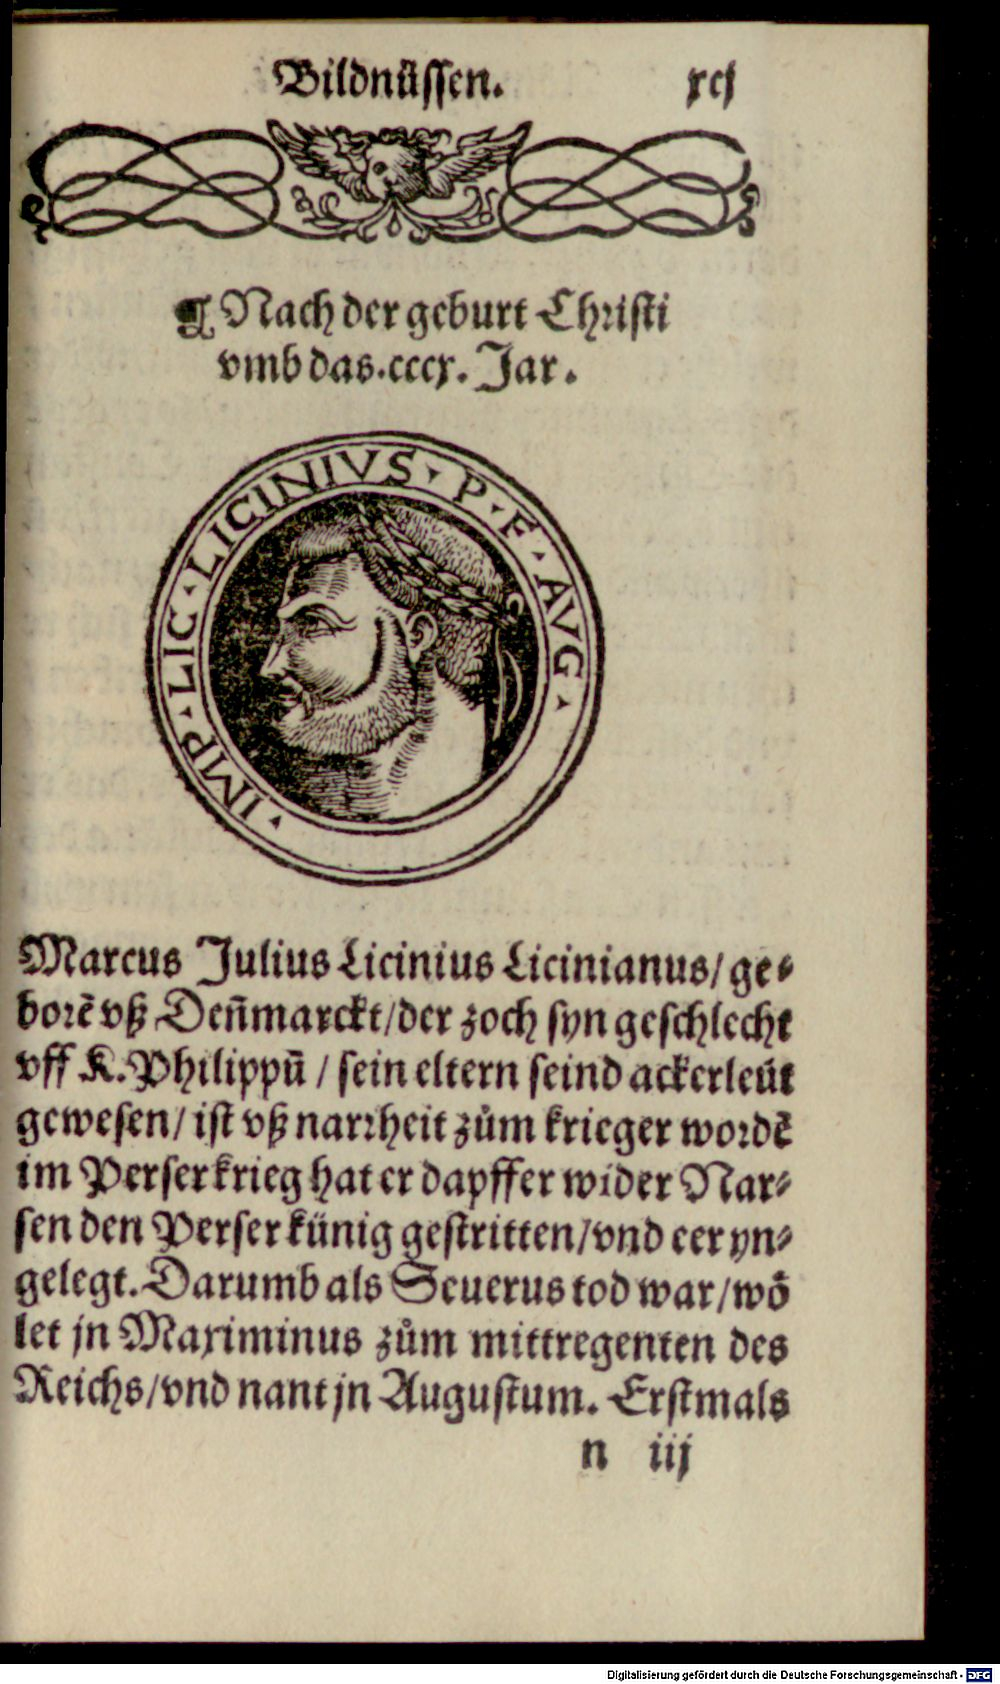 Bildnüssen. xcj
¶ Nach der geburt Christi
vmb das.cccx. Jar.
IMP · LIC · LICINIVS · P · F · AVG ·
Marcus Julius Licinius Licinianus/ ge-
borē vß Den̄marckt/der zoch syn geschlecht
vff K. Philippū / sein eltern seind ackerleüt
gewesen/ ist vß narrheit zům krieger wordē
im Perserkrieg hat er dapffer wider Nar-
sen den Perser künig gestritten/vnd eer yn-
gelegt. Darumb als Seuerus tod war/wȫ
let jn Maximinus zům mittregenten des
Reichs/vnd nant jn Augustum. Erstmals
n iij
Digitalisierung gefördert durch die Deutsche Forschungsgemeinschaft - DFG